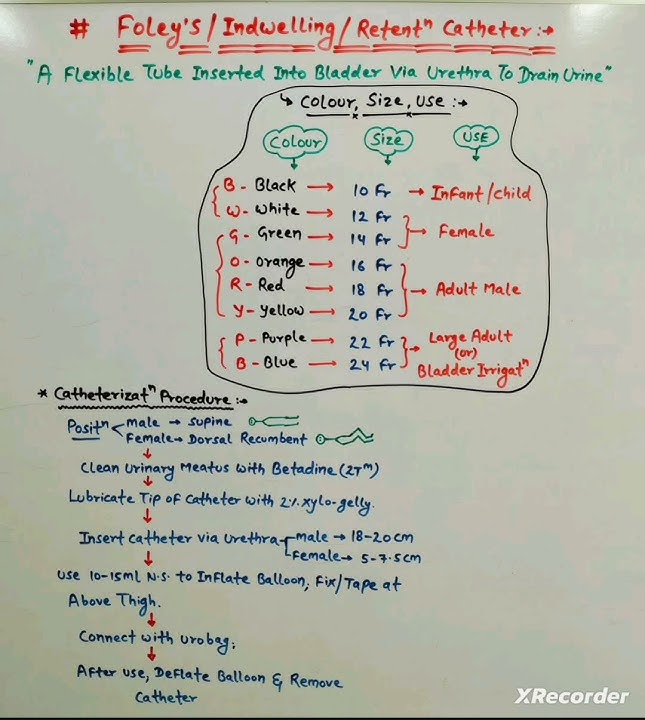 # Foley's / Indwelling / Retentⁿ Catheter :→
"A Flexible Tube Inserted Into Bladder Via Urethra To Drain Urine"
↳ Colour, Size, Use :→
Colour Size USE
B - Black → 10 Fr → Infant/child
W - White → 12 Fr
G - Green → 14 Fr → Female
O - Orange → 16 Fr
R - Red → 18 Fr → Adult Male
Y - Yellow → 20 Fr
P - Purple → 22 Fr → Large Adult
(or)
B - Blue → 24 Fr Bladder Irrigatⁿ
* Catheterizatⁿ Procedure :→
Positⁿ male → supine
Female → Dorsal Recumbent
↓
Clean Urinary Meatus with Betadine (2Tᵐ)
↓
Lubricate Tip of Catheter with 2% xylo-gelly.
↓
Insert catheter via urethra male → 18-20 cm
Female → 5-7.5 cm
↓
Use 10-15ml N.S. to Inflate Balloon, Fix/Tape at
Above Thigh.
↓
Connect with urobag;
↓
After use, Deflate Balloon & Remove
Catheter
XRecorder